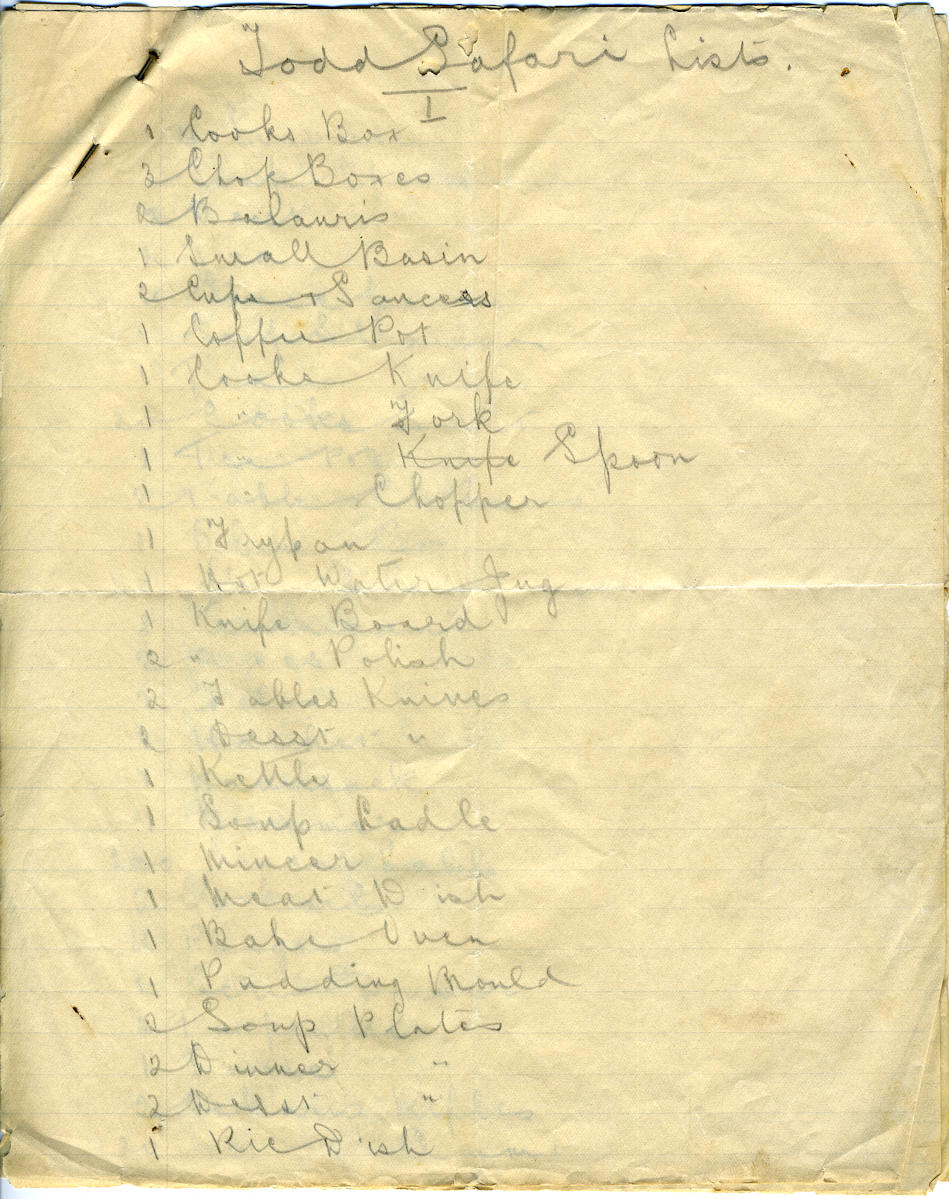 Todd Safari Lists.
I
1 Cooks Box
3 Chop Boxes
2 Balauris
1 Small Basin
2 Cups + Saucers
1 Coffee Pot
1 Cooks Knife
1 " Fork
1 " Knife Spoon
1 " Chopper
1 Frypan
1 Hot Water Jug
1 Knife Board
2 " Polish
2 Tables Knives
2 Desst "
1 Kettle
1 Soup Ladle
1 Mincer
1 Meat Dish
1 Bake Oven
1 Pudding Mould
2 Soup Plates
2 Dinner "
2 Desst "
1 Pie Dish